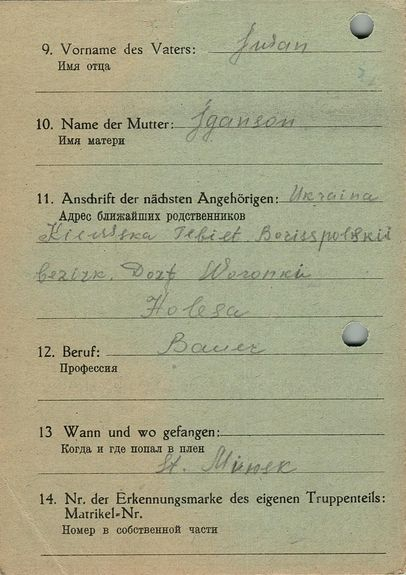 9. Vorname des Vaters: Iwan
Имя отца
10. Name der Mutter: Iganson
Имя матери
11. Anschrift der nächsten Angehörigen: Ukraina
Адрес ближайших родственников
Kiewska Tebiet Borisspolskii
bezirk. Dorf Woronki
Holesa
12. Beruf: Bauer
Профессия
13 Wann und wo gefangen:
Когда и где попал в плен
St. Minsk
14. Nr. der Erkennungsmarke des eigenen Truppenteils:
Matrikel-Nr.
Номер в собственной части